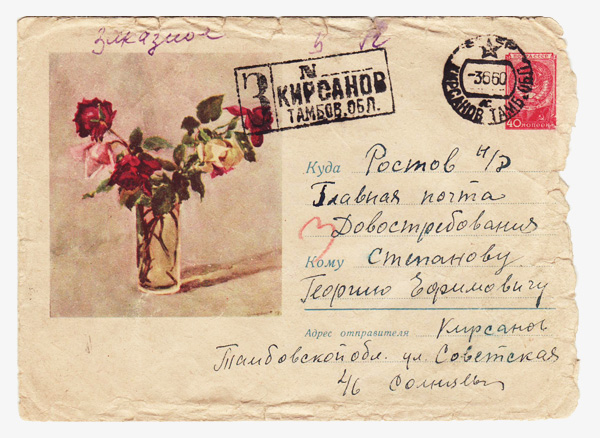 Заказное
З
N
КИРСАНОВ
ТАМБОВ. ОБЛ.
КИРСАНОВ ТАМБ. ОБЛ.
-3660
40 КОПЕЕК
Куда Ростов н/Д
Главная почта
Довостребования
З
Кому Степанову
Георгию Ефимовичу
Адрес отправителя Кирсанов
Тамбовской обл. ул. Советская
4/6